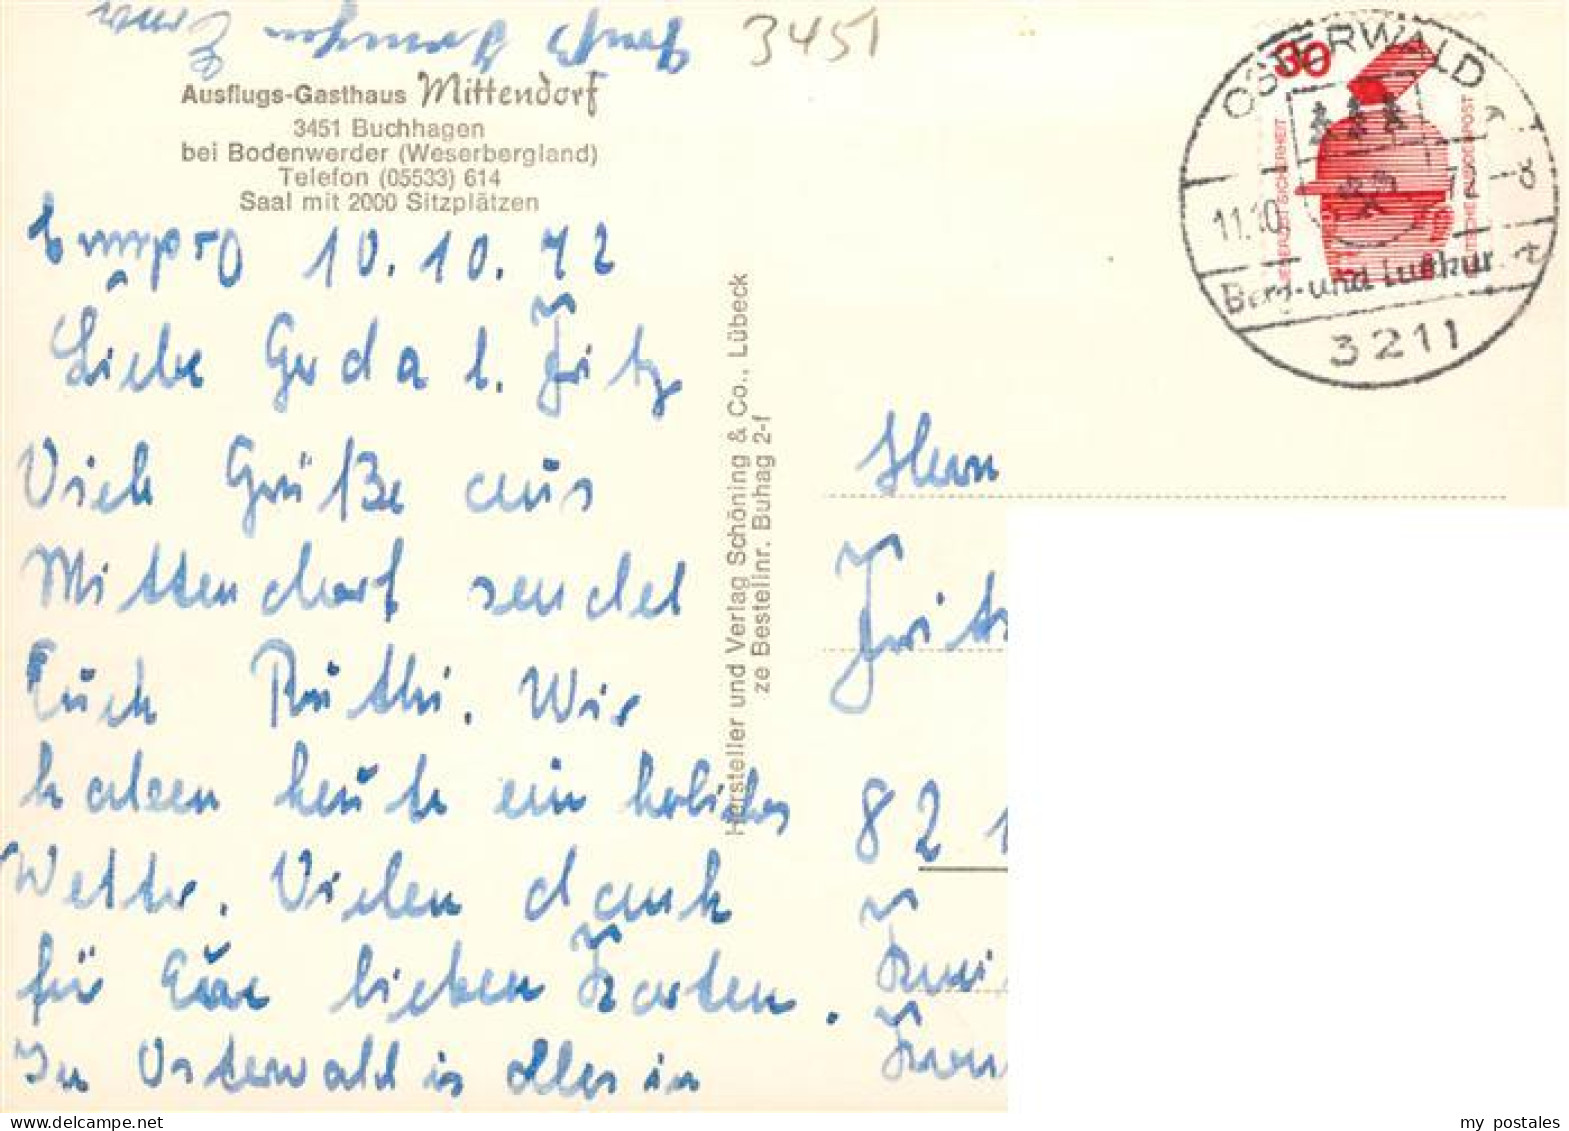 3451
Ausflugs-Gasthaus Mittendorf
3451 Buchhagen
bei Bodenwerder (Weserbergland)
Telefon (05533) 614
Saal mit 2000 Sitzplätzen
10.10.72
Liebe Gerda u. Fritz
Viele Grüße aus
Mittendorf sendet
Euch Ruthi. Wir
haben heute ein herliches
Wetter. Vielen dank
für Eure lieben Karten.
In Osterwald is alles in
Ordnung
Gruß
Erna
Hersteller und Verlag Schöning & Co., Lübeck
ze Bestellnr. Buhag 2-f
OSTERWALD
30
UNFALL SICHERHEIT
DEUTSCHE BUNDESPOST
11.10.
72-8
Berg-und Luftkur
3211
Herrn
Fritz
82 1
my postales